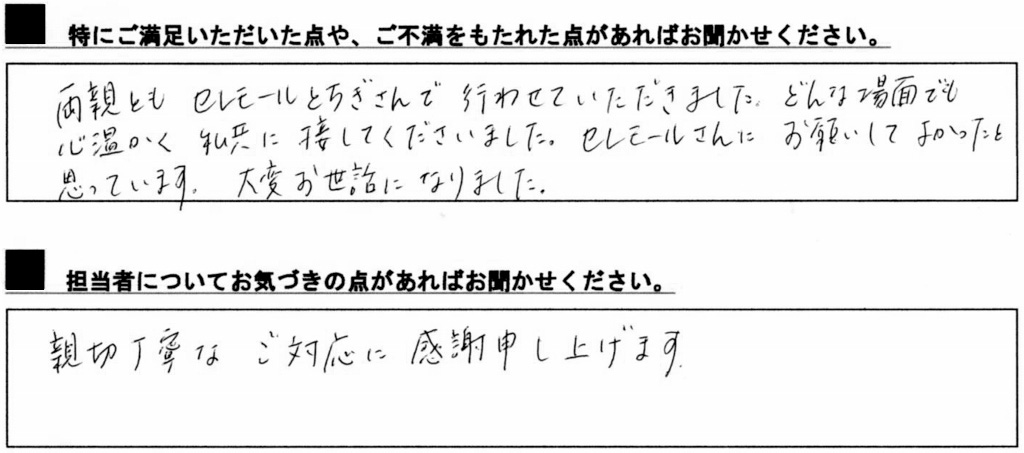 特にご満足いただいた点や、ご不満をもたれた点があればお聞かせください。
両親とも セレモールとちぎさんで 行わせていただきました。どんな場面でも
心温かく 私共に 接してくださいました。セレモールさんに お願いして よかったと
思っています。大変お世話になりました。
担当者についてお気づきの点があればお聞かせください。
親切丁寧な ご対応に 感謝申し上げます。